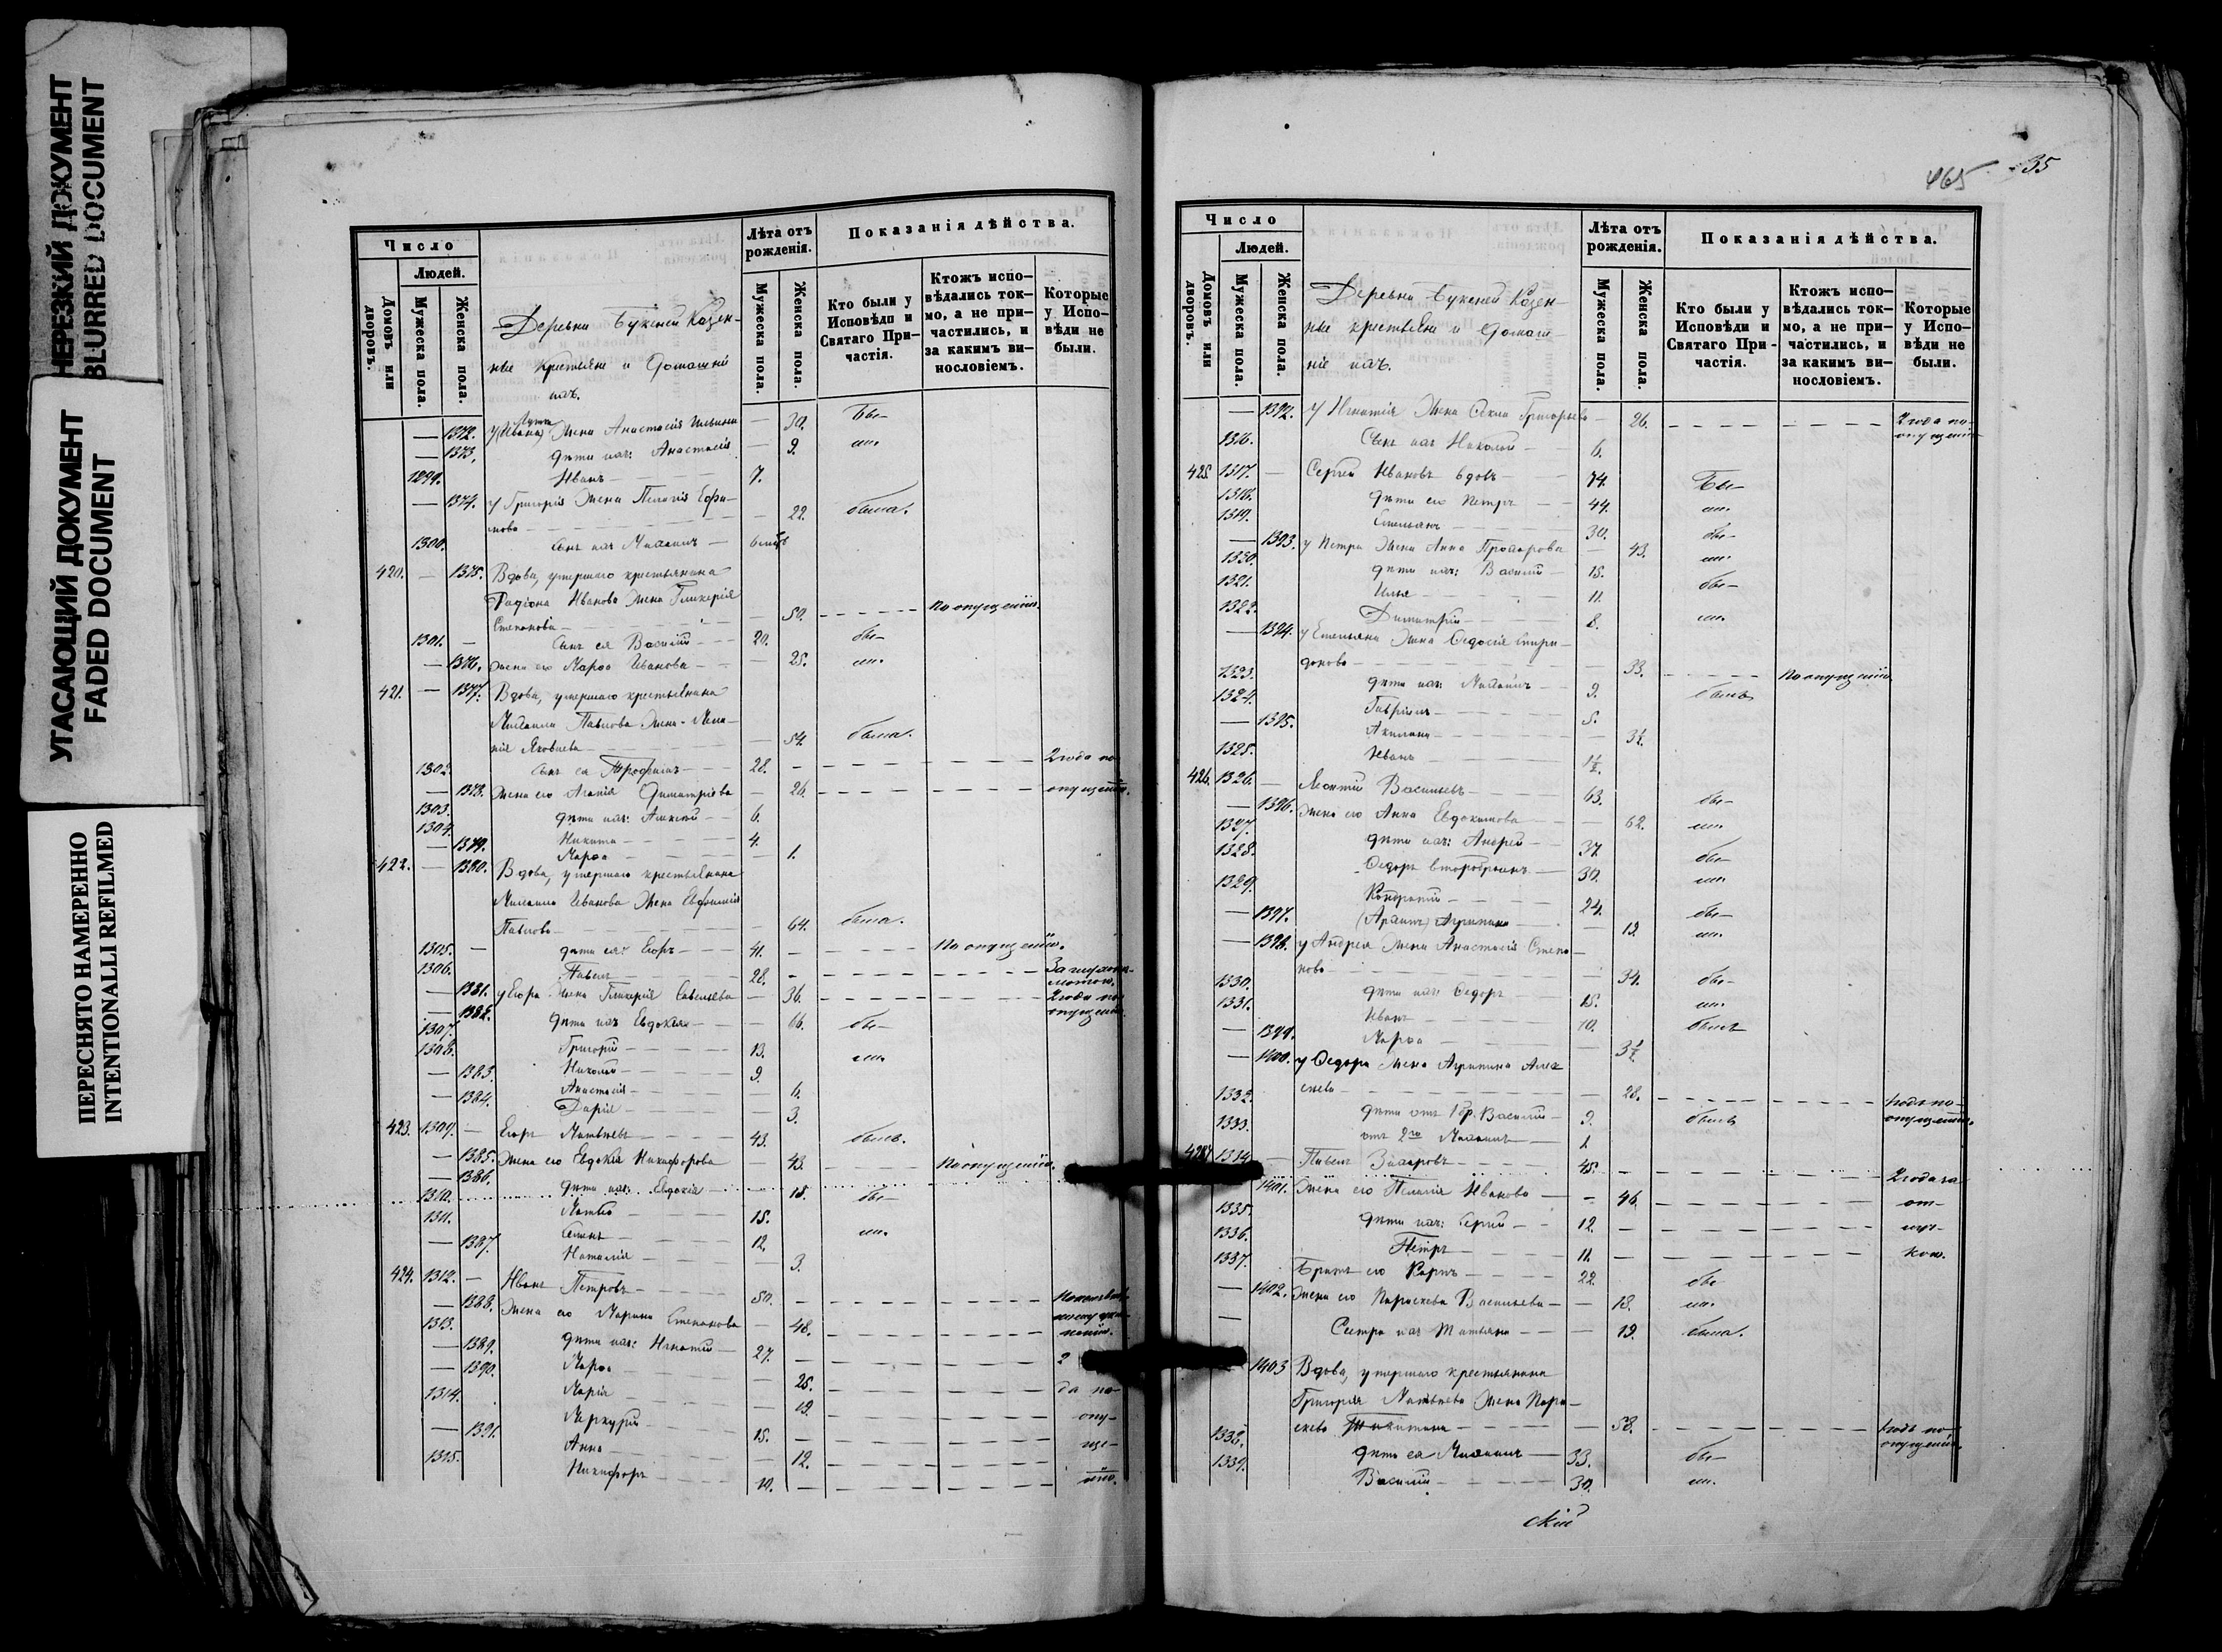 НЕРЕЗКИЙ ДОКУМЕНТ
BLURRED DOCUMENT
УГАСАЮЩИЙ ДОКУМЕНТ
FADED DOCUMENT
ПЕРЕСНЯТО НАМЕРЕННО
INTENTIONALLI REFILMED
Число
Людей.
Домовъ или дворовъ.
Мужеска пола.
Женска пола.
Деревни Букеней Казен-
ные крестьяне и домашніе
ихъ.
Лѣта отъ рожденія.
Мужеска пола.
Женска пола.
Показанія дѣйства.
Кто были у Исповѣди и Святаго При-частія.
Ктожъ испо-вѣдались ток-мо, а не при-частились, и за какимъ ви-нословіемъ.
Которые у Испо-вѣди не были.
— 1372. У (Ивана) Жена Анастасія Ильина — 30. бы-
— 1373. дѣти ихъ: Анастасія — 9. ли.
1299. Иванъ — 7.
— 1374. у Григорія Жена Пелагія Ефи-
мова — 22. была.
1300. Сынъ ихъ Михаилъ — 6
420. — 1375. Вдова, умершаго крестьянина
Родіона Иванова Жена Гликерія
Степанова — 50. По опущенію.
1301. — Сынъ ея Василій — 20. бы-
— 1376. Жена его Марѳа Иванова — 25. ли.
421. — 1377. Вдова, умершаго крестьянина
Михаила Павлова Жена Мела-
нія Яковлева — 54. была.
1302. Сынъ ея Трофимъ — 28. 2 года по
— 1378. Жена его Агапія Димитріева — 26. опущенію.
1303. дѣти ихъ: Алексій — 6.
1304. Никита — 4.
— 1379. Марѳа — 1.
422. — 1380. Вдова, умершаго крестьянина
Михаила Иванова Жена Евфимія
Павлова — 64. была.
1305. — дѣти ея: Егоръ — 41. По опущенію.
1306. Павелъ — 28. За
— 1381. у Егора Жена Гликерія Савельева — 36. 2 года по
— 1382. дѣти ихъ Евдокія — 16. бы- опущенію.
1307. Григорій — 13. ли.
1308. Николай — 9.
— 1383. Анастасія — 6.
— 1384. Дарія — 3.
423. 1309. — Егоръ Матвѣевъ — 43. былъ.
— 1385. Жена его Евдокія Никифорова — 43. По опущенію.
— 1386. дѣти ихъ: Евдокія — 18. бы-
1310. Матвѣй — 15. ли.
1311. 12.
— 1387. Наталія — 3.
424. 1312. — Иванъ Петровъ — 50.
— 1388. Жена его Марина Степанова — 48.
1313. дѣти ихъ: Игнатій — 27. 2
— 1389. Марѳа — 25. да по-
— 1390. Марія — 19. опу-
1314. Меркурій — 15. ще-
— 1391. Анна — 12. нію.
1315. Никифоръ — 10.
465 35
Число
Людей.
Домовъ или дворовъ.
Мужеска пола.
Женска пола.
Деревни Букеней Казен-
ные крестьяне и домаш-
ніе ихъ.
Лѣта отъ рожденія.
Мужеска пола.
Женска пола.
Показанія дѣйства.
Кто были у Исповѣди и Святаго При-частія.
Ктожъ испо-вѣдались ток-мо, а не при-частились, и за какимъ ви-нословіемъ.
Которые у Испо-вѣди не были.
— 1392. У Игнатія Жена Ѳекла Григорьева — 26. 2 года по
1316. Сынъ ихъ Николай — 6. опущенію
425. 1317. — Сергій Ивановъ вдовъ — 74. Бы-
1318. дѣти его Петръ — 44. ли.
1319. Емельянъ — 30. бы-
— 1393. у Петра Жена Анна Прохорова — 43. ли.
1320. дѣти ихъ: Василій — 15. бы-
1321. Илья — 11. ли.
1322. Димитрій — 8.
— 1394. у Емельяна Жена Ѳедосія Спири-
донова — 33. По опущенію
1323. дѣти ихъ: Михаилъ — 9. былъ
1324. Гавріилъ — 5.
— 1395. Акилина — 3½.
1325. Иванъ — 1½.
426. 1326. — Леонтій Васильевъ — 63. бы-
— 1396. Жена его Анна Евдокимова — 62. ли.
1327. дѣти ихъ: Андрей — 37. бы-
1328. Ѳедоръ второбрачнъ — 30. ли.
1329. Кондратій — 24. бы-
— 1397. Агрипина — 19. ли.
— 1398. у Андрея Жена Анастасія Степа-
нова — 34. бы-
1330. дѣти ихъ Ѳедоръ — 15. ли.
1331. Иванъ — 10. былъ
— 1399. Марѳа — 3½.
— 1400. у Ѳедора Жена Агрипина Алек
сѣева — 28. Годъ по-
1332. дѣти отъ 1 бр. Василій — 9. былъ опущенію.
1333. отъ 2го Михаилъ — 1.
427. 1334. — Павелъ Захаровъ — 45. 2 года за
1401. Жена его Пелагія Иванова — 46. от-
1335. дѣти ихъ: Сергій — 12. луч-
1336. Петръ — 11. кою.
1337. Братъ его Карпъ — 22. бы-
— 1402. Жена его Параскева Васильева — 18. ли.
— Сестра ихъ Татьяна — 19. была.
1403 Вдова, умершаго крестьянина
Григорія Матвѣева Жена Пара-
скева Никитина — 58. Годъ по-
1338. дѣти ея Михаилъ — 33. бы- опущенію.
1339. Василій — 30. ли.
скій